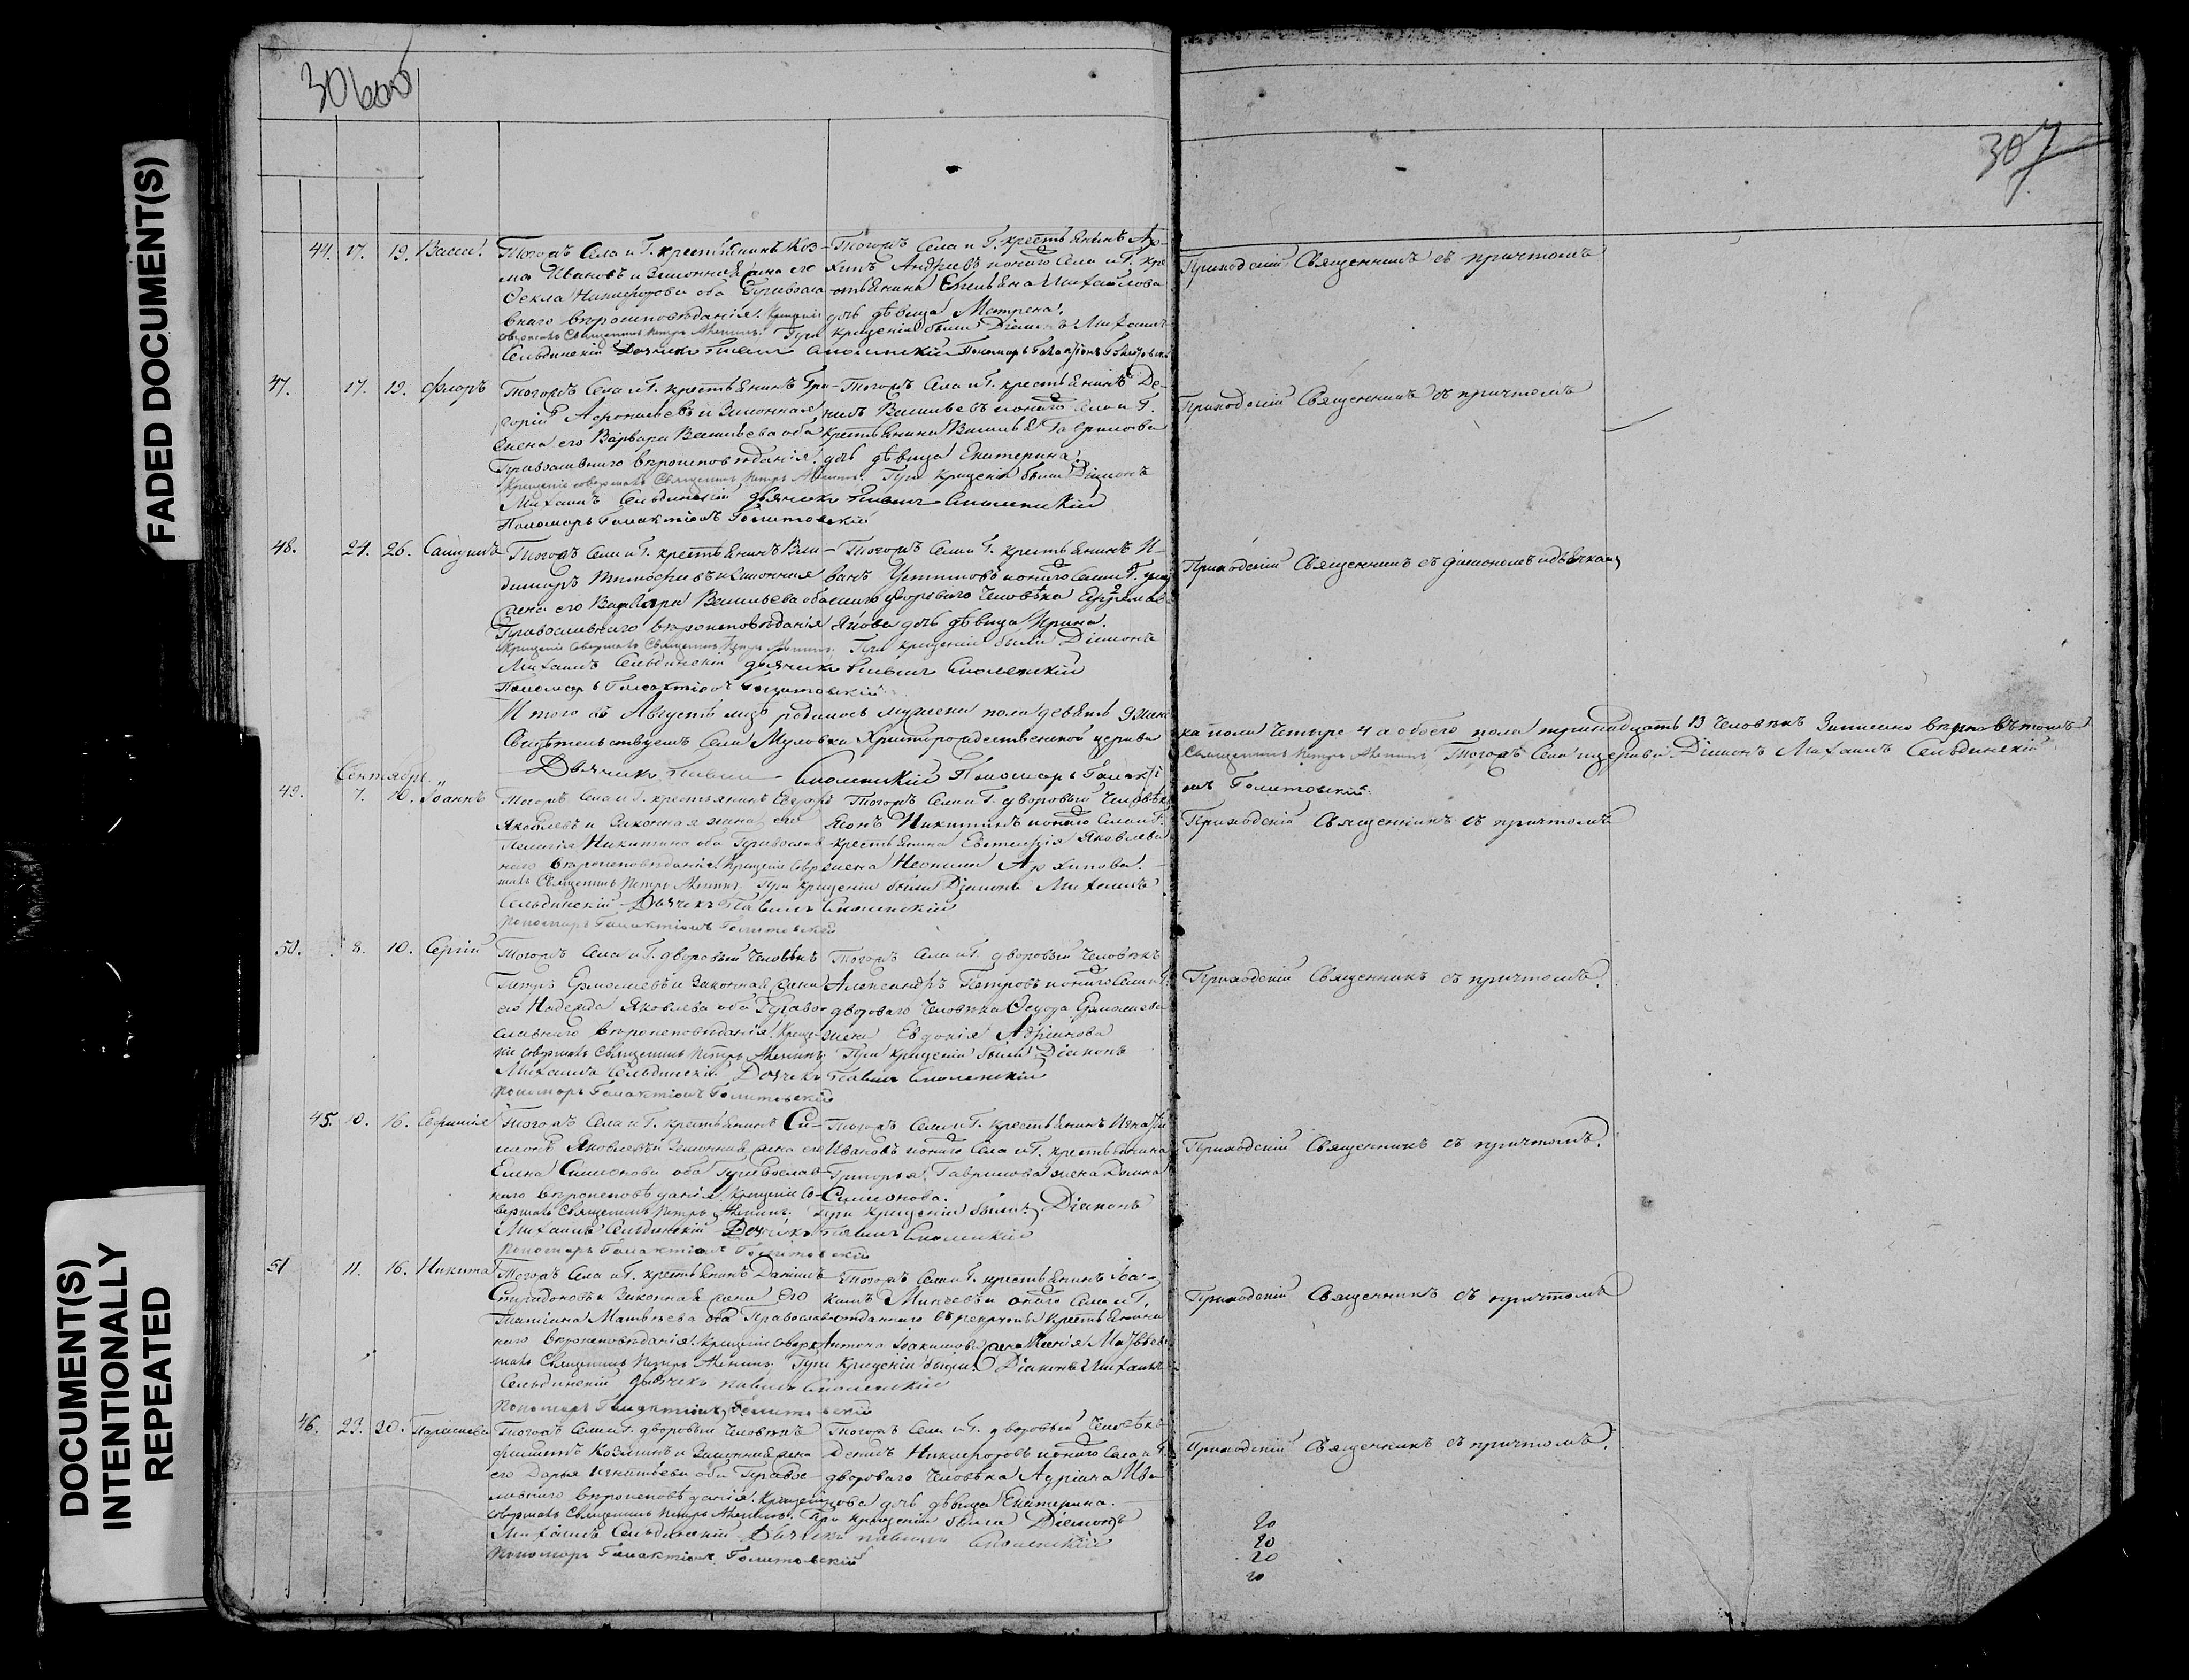 306об
307
FADED DOCUMENT(S)
DOCUMENT(S)
INTENTIONALLY
REPEATED
44. 17. 19. Васса. Тогожъ Села и Г. крестьянинъ Коз-
ма Ивановъ и Законная жена его
Фекла Никифорова оба Православ-
наго вѣроисповѣданія. Крещеніе
совершалъ Священникъ Петръ
Тогожъ Села и Г. крестьянинъ Ар-
хипъ Андреевъ и онаго Села и Г. кре-
стьянина Емельяна Михайлова
дочь дѣвица Матрена.
При крещеніи были Діаконъ Михаилъ
Сельдинскій Дьячекъ Павелъ Смоленскій Пономарь Галактіонъ
Приходскій Священникъ съ причтомъ
47. 17. 19. Флоръ Тогожъ Села и Г. крестьянинъ Гри-
горій и Законная
жена его Варвара Васильева оба
Православнаго вѣроисповѣданія.
Крещеніе совершалъ Священникъ Петръ
Тогожъ Села и Г. крестьянинъ
Васильевъ и онаго Села и Г.
крестьянина Василья Гаврилова
дочь дѣвица Екатерина.
При крещеніи были Діаконъ
Михаилъ Сельдинскій дьячекъ Павелъ Смоленскій
Пономарь Галактіонъ
Приходскій Священникъ съ причтомъ
48. 24. 26. Тогожъ Села и Г. крестьянинъ Вла-
димиръ Тимофеевъ и Законная
жена его Варвара Васильева оба
Православнаго вѣроисповѣданія
Крещеніе совершалъ Священникъ Петръ
Тогожъ Села и Г. крестьянинъ И-
ванъ и онаго Села и Г.
двороваго Человѣка
дочь дѣвица Ирина.
При крещеніи были Діаконъ
Михаилъ Сельдинскій дьячекъ Павелъ Смоленскій
Пономарь Галактіонъ
Приходскій Священникъ съ діакономъ и дьячкомъ
Итого въ Августѣ мцѣ родилось мужеска пола девять 9 женс-
ка пола Четыре 4 а обоего пола тринадцать 13 Человѣкъ
Свидѣтельствуемъ Села Христорождественской церкви
Священникъ Петръ Тогожъ Села и церкви Діаконъ Михаилъ Сельдинскій
Дьячекъ Павелъ Смоленскій Пономарь Галакті-
онъ
Сентябрь
49. 7. 10. Іоаннъ Тогожъ Села и Г. крестьянинъ
Яковлевъ и Законная жена его
Пелагія Никитина оба Православ-
наго вѣроисповѣданія. Крещеніе совер-
шалъ Священникъ Петръ
Тогожъ Села и Г. дворовый Человѣкъ
Никитинъ и онаго Села и Г.
крестьянина Яковлева
жена Архипова.
При крещеніи были Діаконъ Михаилъ
Сельдинскій Дьячекъ Павелъ Смоленскій
Пономарь Галактіонъ
Приходскій Священникъ съ причтомъ
50. 8. 10. Сергій Тогожъ Села и Г. дворовый Человѣкъ
Петръ Ермолаевъ и Законная жена
его Надежда Яковлева оба Право-
славнаго вѣроисповѣданія. Креще-
ніе совершалъ Священникъ Петръ
Тогожъ Села и Г. дворовый Человѣкъ
Александръ Петровъ и онаго Села и Г.
двороваго Человѣка Ермолаева
жена Евдокія Адріанова
При крещеніи были Діаконъ
Михаилъ Сельдинскій Дьячекъ Павелъ Смоленскій
Пономарь Галактіонъ
Приходскій Священникъ съ причтомъ.
45. 10. 16. Тогожъ Села и Г. крестьянинъ Си-
меонъ Яковлевъ и Законная жена его
Елена Симеонова оба Православ-
наго вѣроисповѣданія. Крещеніе со-
вершалъ Священникъ Петръ
Тогожъ Села и Г. крестьянинъ Игнатій
Ивановъ и онаго Села и Г. крестьянина
Григорья Гаврилова жена Домна
Симеонова.
При крещеніи были: Діаконъ
Михаилъ Сельдинскій Дьячекъ Павелъ Смоленскій
Пономарь Галактіонъ
Приходскій Священникъ съ причтомъ.
51 11. 16. Никита Тогожъ Села и Г. крестьянинъ Даніилъ
Спиридоновъ и Законная жена его
Татіана Матвѣева оба Православ-
наго вѣроисповѣданія. Крещеніе совер-
шалъ Священникъ Петръ
Тогожъ Села и Г. крестьянинъ Іоа-
кимъ и онаго Села и Г.
отданнаго въ рекруты крестьянина
Антона Іоакимова жена
При крещеніи были: Діаконъ Михаилъ
Сельдинскій дьячекъ Павелъ Смоленскій
Пономарь Галактіонъ
Приходскій Священникъ съ причтомъ
46. 23. 30. Параскева Тогожъ Села и Г. дворовый Человѣкъ
Филиппъ Козминъ и Законная жена
его Дарья Игнатьева оба Право-
славнаго вѣроисповѣданія. Крещеніе
совершалъ Священникъ Петръ
Тогожъ Села и Г. дворовый Человѣкъ
Никифоровъ и онаго Села и Г.
двороваго Человѣка Адріана Ива-
нова дочь дѣвица Екатерина.
При крещеніи были Діаконъ
Михаилъ Сельдинскій Дьячекъ Павелъ Смоленскій
Пономарь Галактіонъ
Приходскій Священникъ съ причтомъ.
20
20
20
20